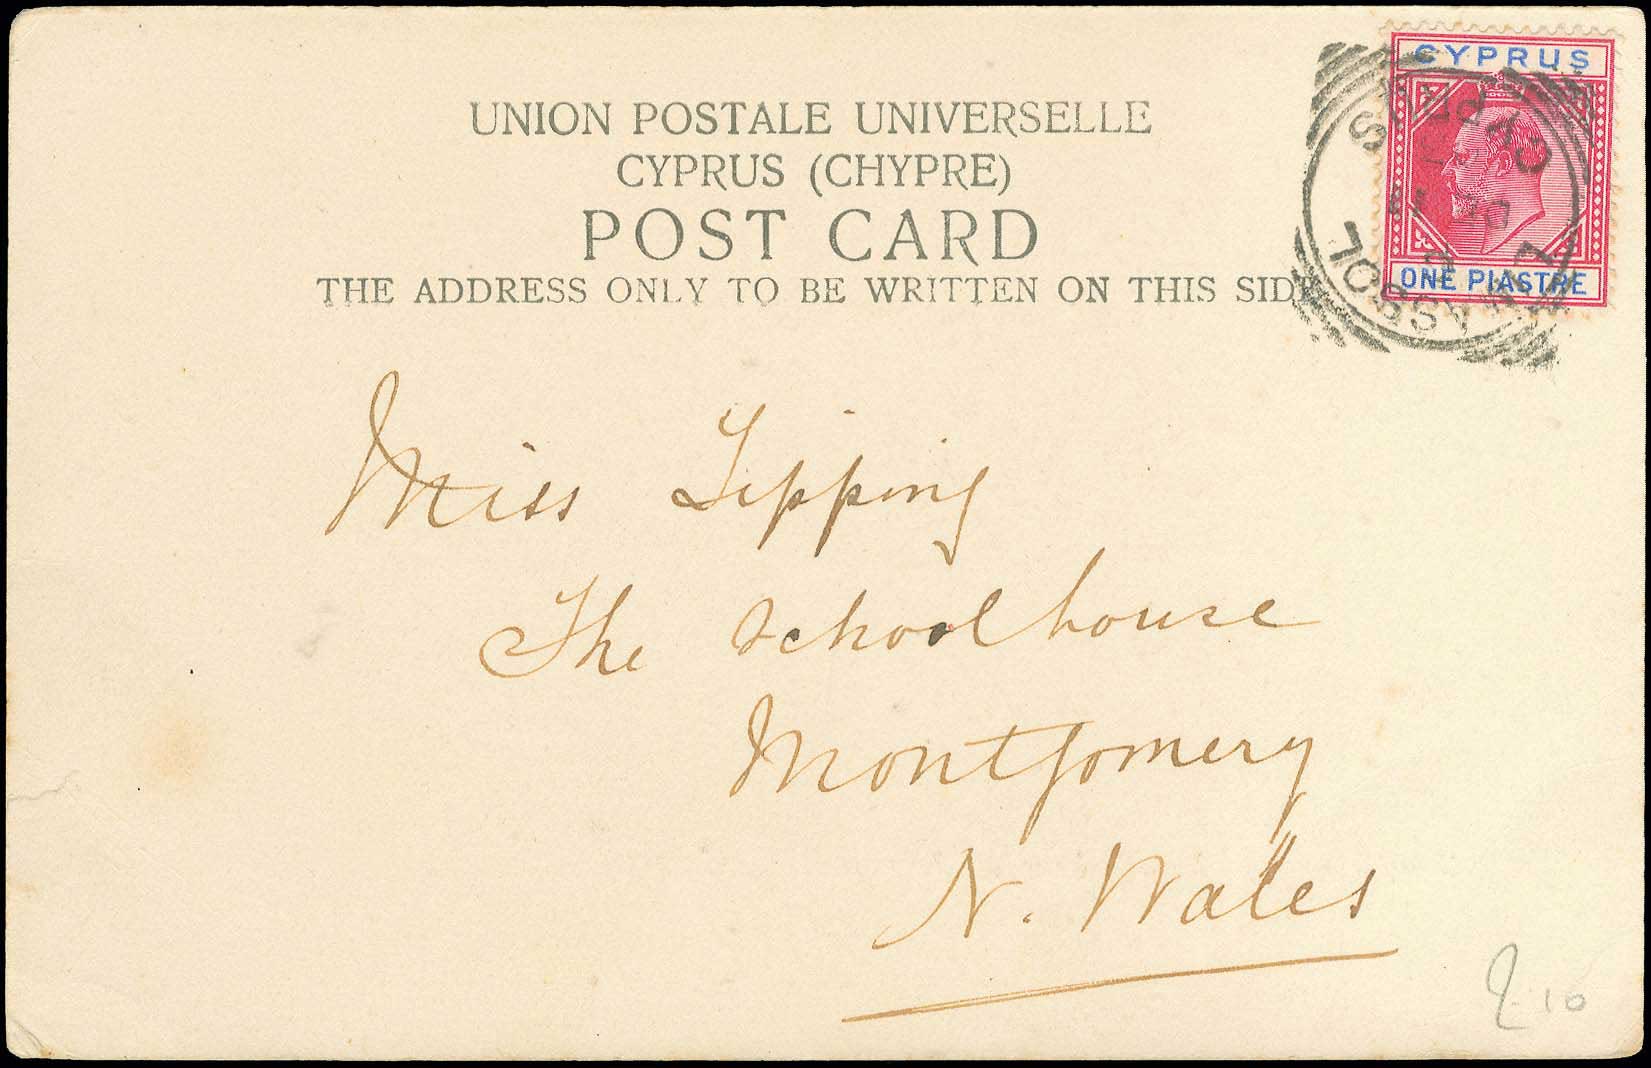 UNION POSTALE UNIVERSELLE
CYPRUS (CHYPRE)
POST CARD
THE ADDRESS ONLY TO BE WRITTEN ON THIS SIDE
CYPRUS
ONE PIASTRE
CYPRUS
LIMASSOL
Miss Tipping
The Schoolhouse
Montgomery
N. Wales